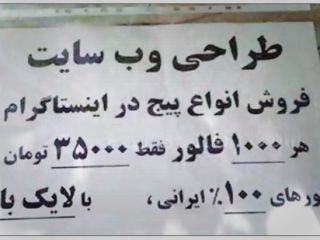 طراحی وب سایت
فروش انواع پیج در اینستاگرام
هر ۱۰۰۰ فالور فقط ۳۵۰۰۰ تومان
ورهای ۱۰۰٪ ایرانی، با لایک با